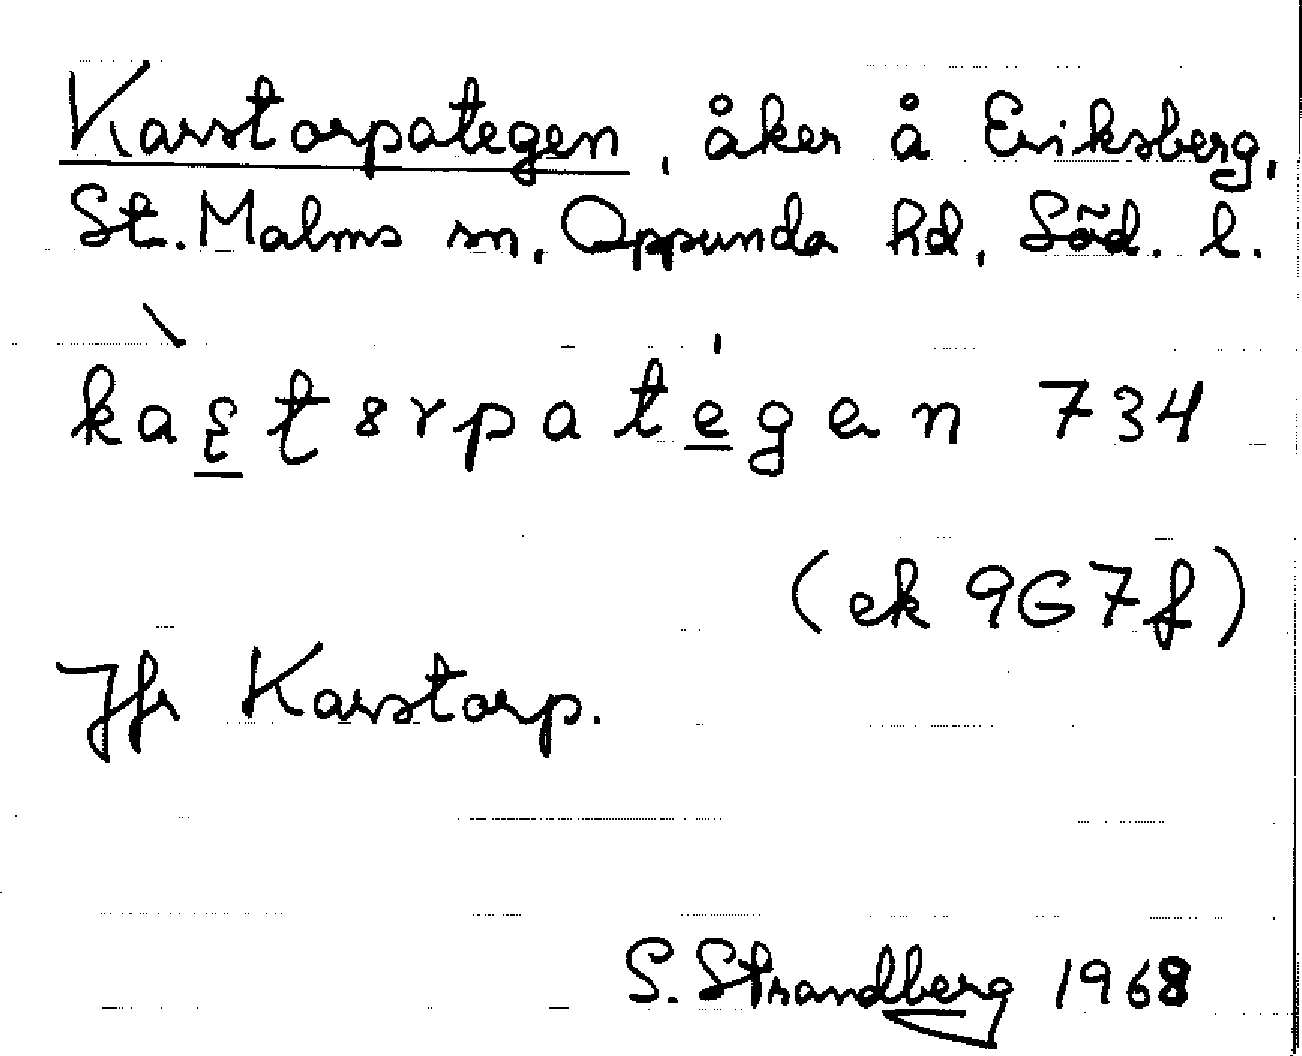 Karstorpategen, åker å Eriksberg,
St. Malms sn, Oppunda hd, Söd. l.
kaşţɜrpategen 734
(ek 9G7f)
Jfr Karstorp.
S. Strandberg 1968